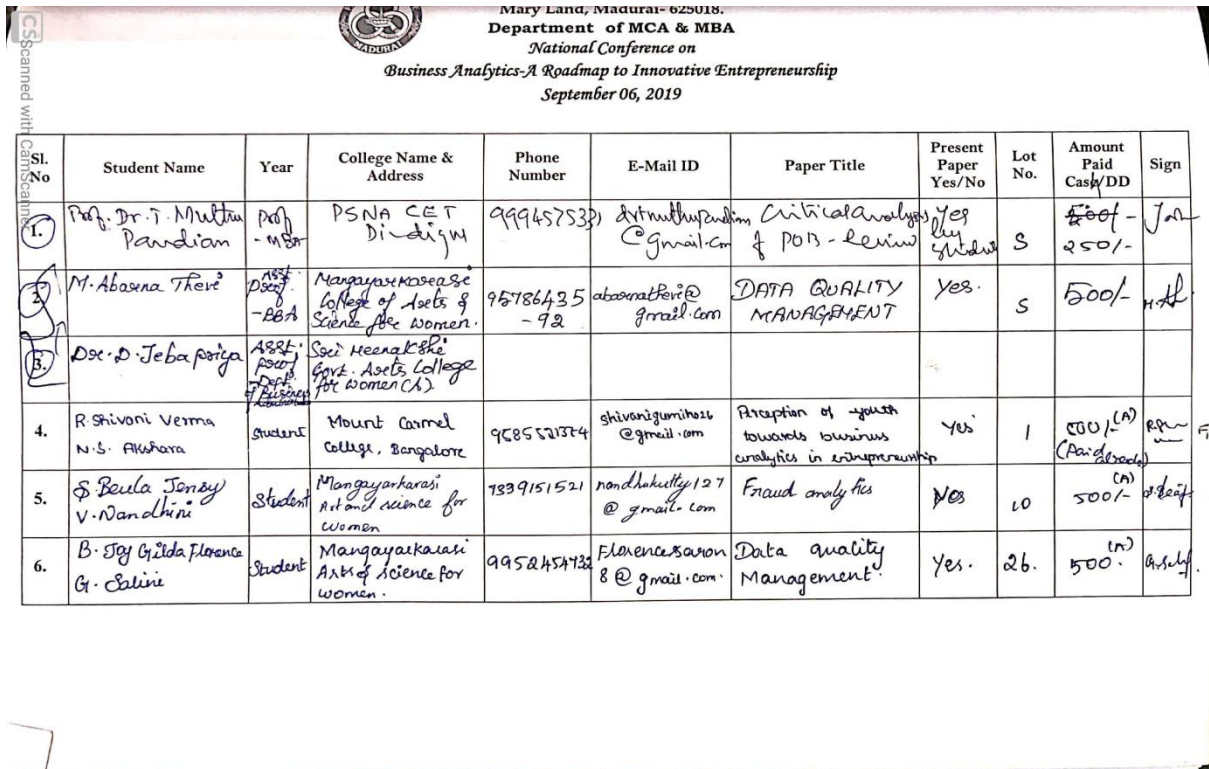 CS Scanned with CamScanner
MADURAI
Mary Land, Madurai- 625018.
Department of MCA & MBA
National Conference on
Business Analytics-A Roadmap to Innovative Entrepreneurship
September 06, 2019
Sl. No | Student Name | Year | College Name & Address | Phone Number | E-Mail ID | Paper Title | Present Paper Yes/No | Lot No. | Amount Paid Cash/DD | Sign
1. | Prof. Dr. T. Muthu Pandian | Prof - MBA | PSNA CET Dindigul | | @gmail.com | Critical analysis of POB - Review | Yes by | S | 500/- 250/-
2. | M. Abarna Thevi | Asst. Prof. - BBA | Mangayarkarasi College of Arts & Science for Women. | 95786435 -92 | abarnathevi@ gmail.com | DATA QUALITY MANAGEMENT | Yes. | S | 500/-
3. | Dr. D. Jebapriya | Asst. Prof - Dept. of Business | Sri Meenakshi Govt. Arts College for Women (A).
4. | R. Shivani Verma N.S. Akshara | Student | Mount Carmel College, Bangalore | | shivanigumiho26 @gmail.com | Perception of youth towards business analytics in entrepreneurship | Yes | 1 | 500/- (A) (Paid already)
5. | S. Beula Jensy V. Nandhini | Student | Mangayarkarasi Art and science for women | 7339151521 | nandhukutty127 @ gmail.com | Fraud analytics | Yes | 10 | (A) 500/-
6. | B. Joy Gilda Florence G. Salini | Student | Mangayarkarasi Arts & science for women. | 9952454732 | Florencesaron 8@gmail.com. | Data quality Management. | Yes. | 26. | (A) 500.